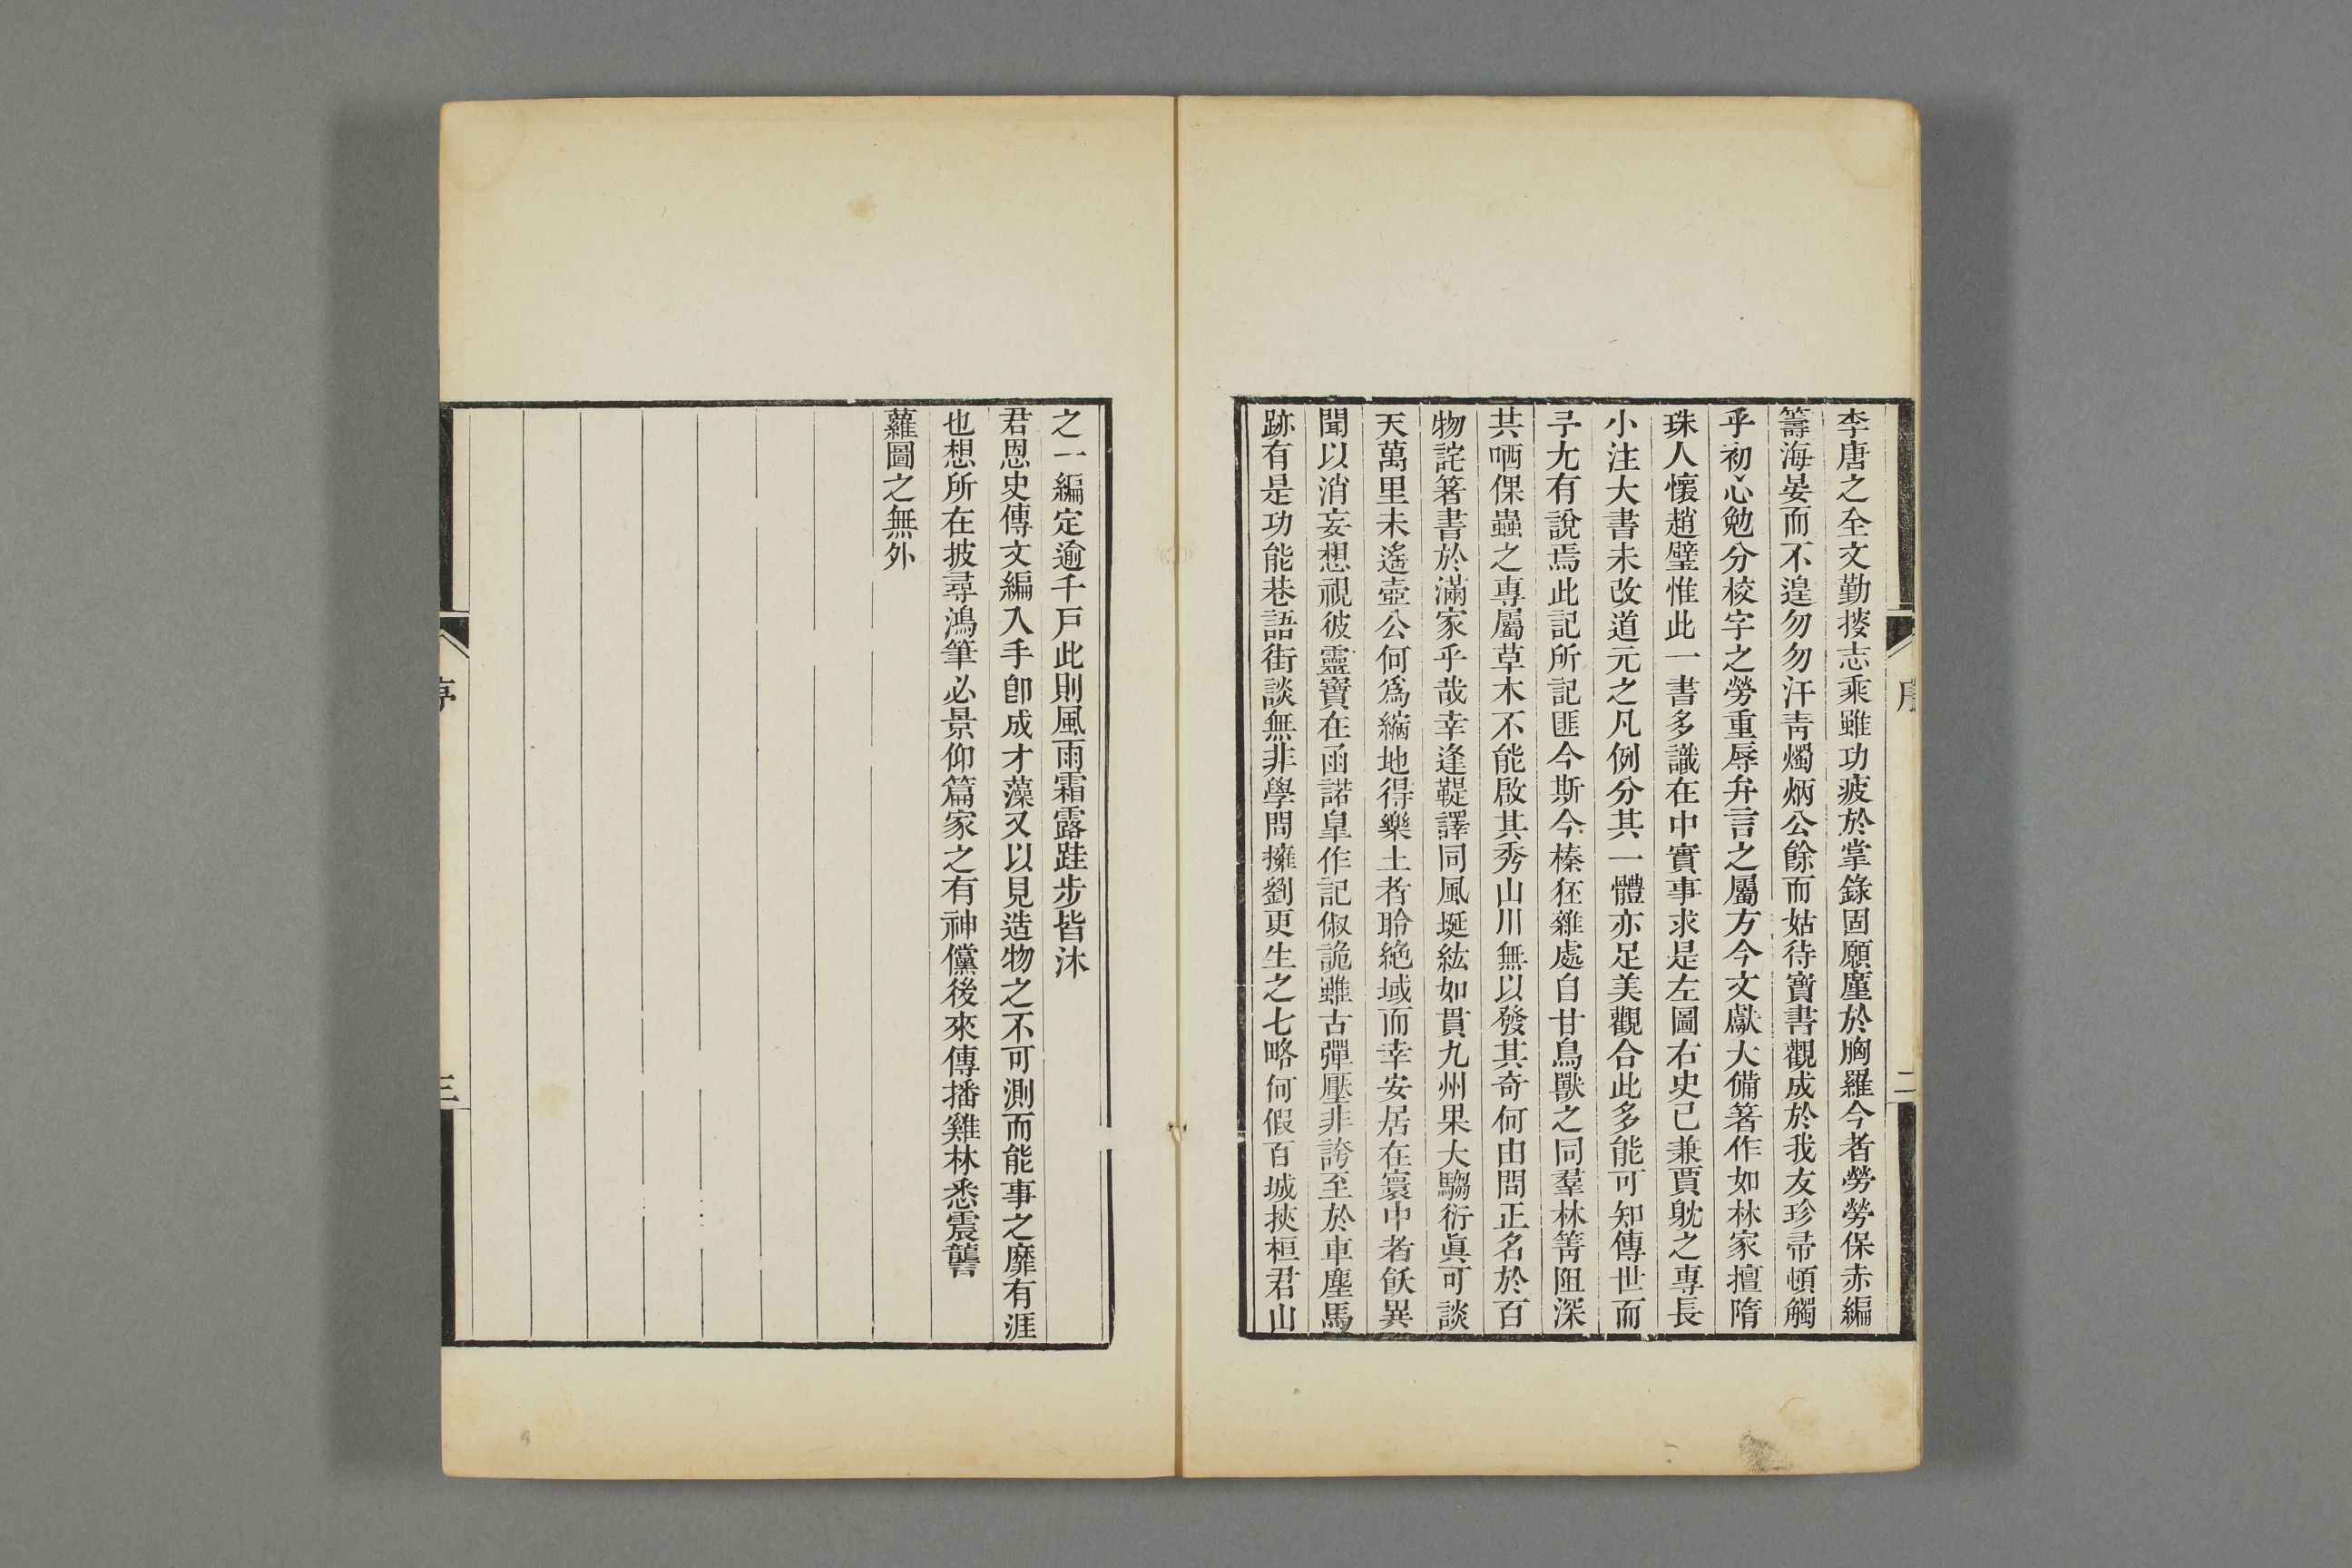 李唐之全文勤搜志乘雖功疲於掌錄固願廑於胸羅今者勞勞保赤編
籌海晏而不遑勿勿汗靑燭炳公餘而姑待寶書觀成於我友珍帚頓觸
乎初心勉分校字之勞重辱弁言之屬方今文獻大備箸作如林家擅隋
珠人懷趙璧惟此一書多識在中實事求是左圖右史已兼賈耽之專長
小注大書未改道元之凡例分其一體亦足美觀合此多能可知傳世而
予尤有說焉此記所記匪今斯今榛狉雜處自甘鳥獸之同羣林箐阻深
共哂倮蟲之專屬草木不能啟其秀山川無以發其奇何由問正名於百
物詫箸書於滿家乎哉幸逢鞮譯同風埏紘如貫九州果大騶衍眞可談
天萬里未遙壺公何爲縮地得樂土者聆絶域而幸安居在寰中者飫異
聞以消妄想視彼靈寶在函諾皐作記俶詭雖古彈壓非誇至於車塵馬
跡有是功能巷語街談無非學問擁劉更生之七略何假百城挾桓君山
序
二
之一編定逾千戸此則風雨霜露跬步皆沐
君恩史傳文編入手卽成才藻又以見造物之不可測而能事之靡有涯
也想所在披尋鴻筆必景仰篇家之有神儻後來傳播雞林悉震讋
蘿圖之無外
序
三